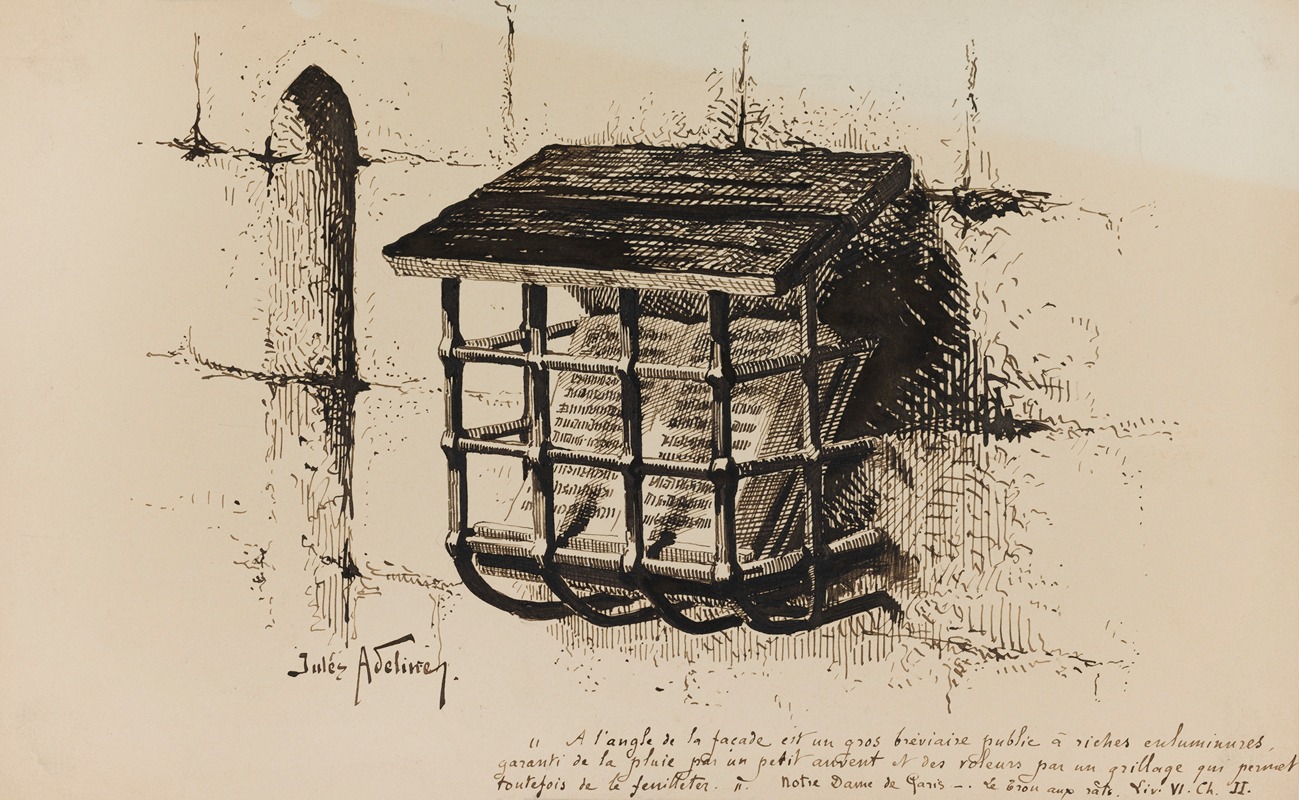 Jules Adeline.
" A l'angle de la façade est un gros bréviaire public à riches enluminures,
garanti de la pluie par un petit auvent et des voleurs par un grillage qui permet
toutefois de le feuilleter. ". Notre Dame de Paris _. Le Trou aux rats. Liv. VI. Ch. II.